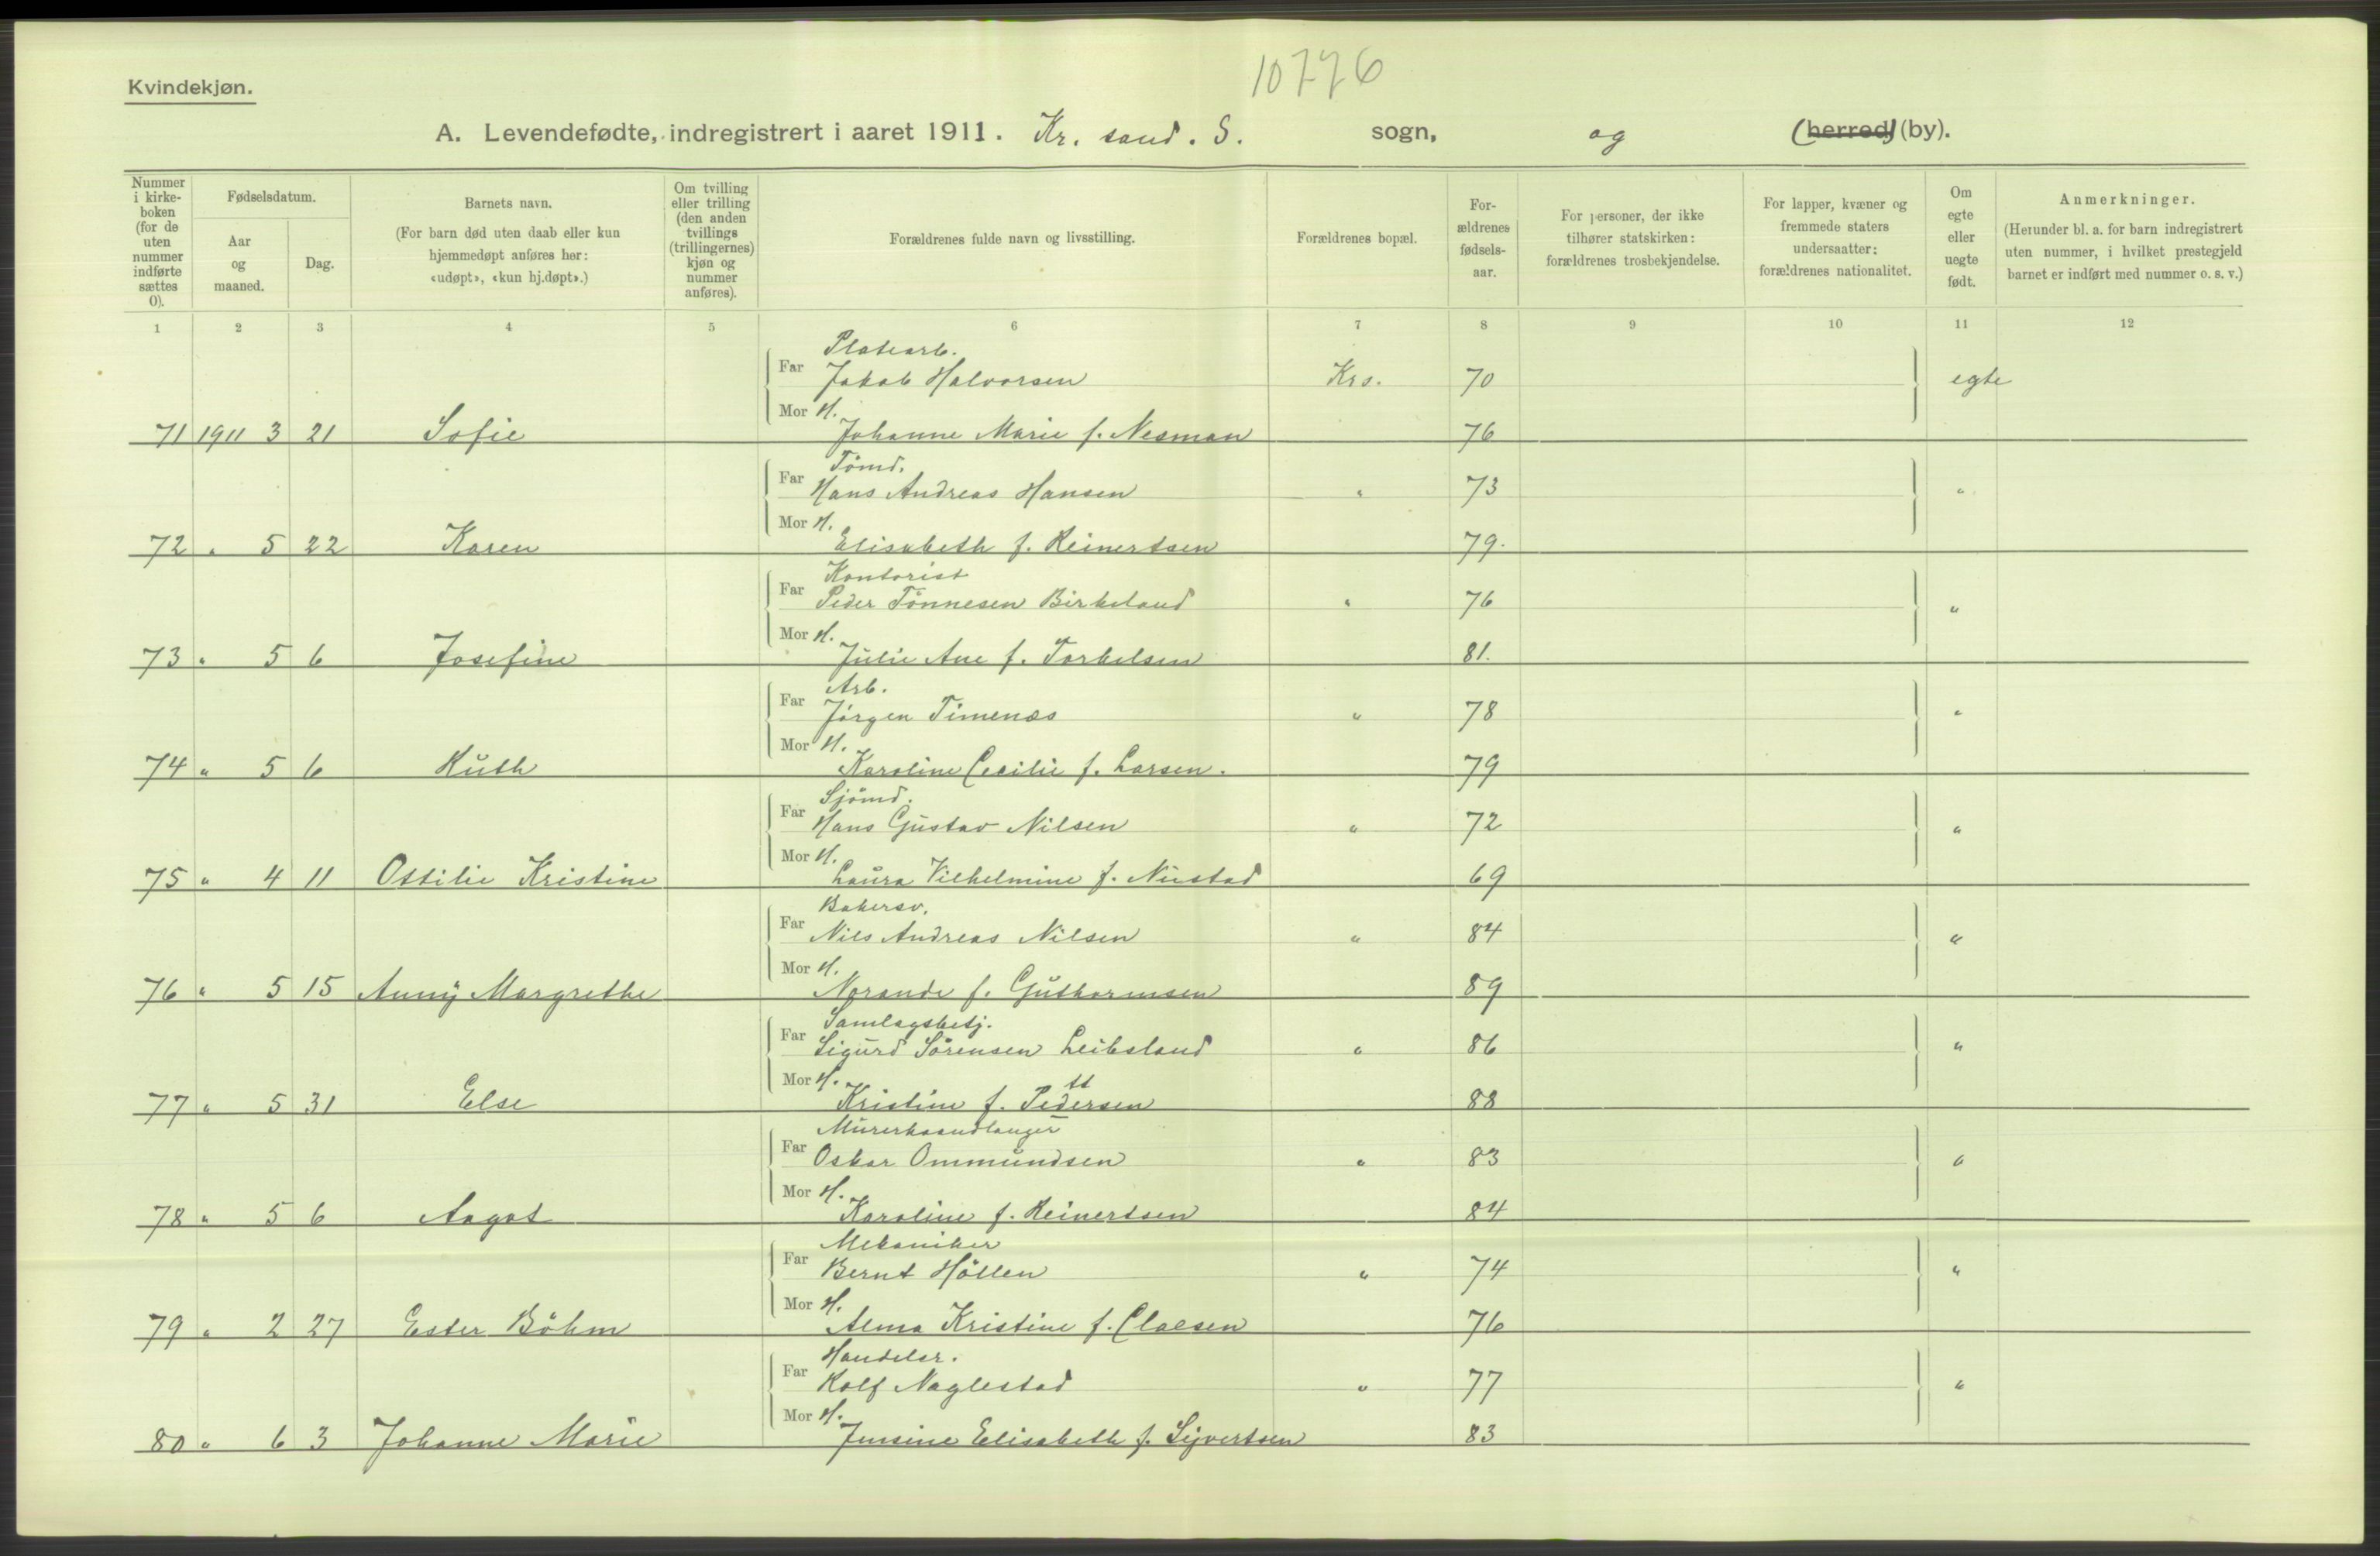 10776
Kvindekjøn.
A. Levendefødte, indregistrert i aaret 1911. Kr. sand. S. sogn, og (herred) (by).
Nummer i kirke-boken (for de uten nummer indførte sættes 0).
Fødselsdatum.
Aar og maaned.
Dag.
Barnets navn.
(For barn død uten daab eller kun hjemmedøpt anføres her: «udøpt», «kun hj.døpt».)
Om tvilling eller trilling (den anden tvillings (trillingernes) kjøn og nummer anføres).
Forældrenes fulde navn og livsstilling.
Forældrenes bopæl.
For-ældrenes fødsels-aar.
For personer, der ikke tilhører statskirken: forældrenes trosbekjendelse.
For lapper, kvæner og fremmede staters undersaatter: forældrenes nationalitet.
Om egte eller uegte født.
Anmerkninger.
(Herunder bl. a. for barn indregistrert uten nummer, i hvilket prestegjeld barnet er indført med nummer o. s. v.)
1 2 3 4 5 6 7 8 9 10 11 12
Platearb.
Far Jakob Halvorsen Krs. 70 egte
Mor H.
71 1911 3 21 Sofie Johanne Marie f. Nesman 76
Tømd.
Far Hans Andreas Hansen " 73 "
Mor H.
72 " 5 22 Karen Elisabeth f. Reinertsen 79.
Kontorist
Far Peder Tönnesen Birkeland " 76 "
Mor H.
73 " 5 6 Josefine Julie Ane f. Torkelsen 81.
Arb.
Far Jörgen Timenes " 78 "
Mor H.
74 " 5 6 Ruth Karoline Cecilie f. Larsen. 79
Sjömd.
Far Hans Gustav Nilsen " 72 "
Mor H.
75 " 4 11 Ottilie Kristine Laura Vilhelmine f. Nustad 69
Bakersv.
Far Nils Andreas Nilsen " 84 "
Mor H.
76 " 5 15 Anny Margrethe Norande f. Guthormsen 89
Samlagsbetj.
Far Sigurd Sörensen Leibsland " 86 "
Mor H.
77 " 5 31 Else Kristine f. Pedersen 88
tt
Murerhaandlanger
Far Oskar Ommundsen " 83 "
Mor H.
78 " 5 6 Aagot Karoline f. Reinertsen 84
Mekaniker
Far Bernt Höllen " 74 "
Mor H.
79 " 2 27 Ester Böhm Alma Kristine f. Claesen 76
Handelsr.
Far Rolf Naglestad " 77 "
Mor H.
80 " 6 3 Johanne Marie Jensine Elisabeth f. Sijvertsen 83